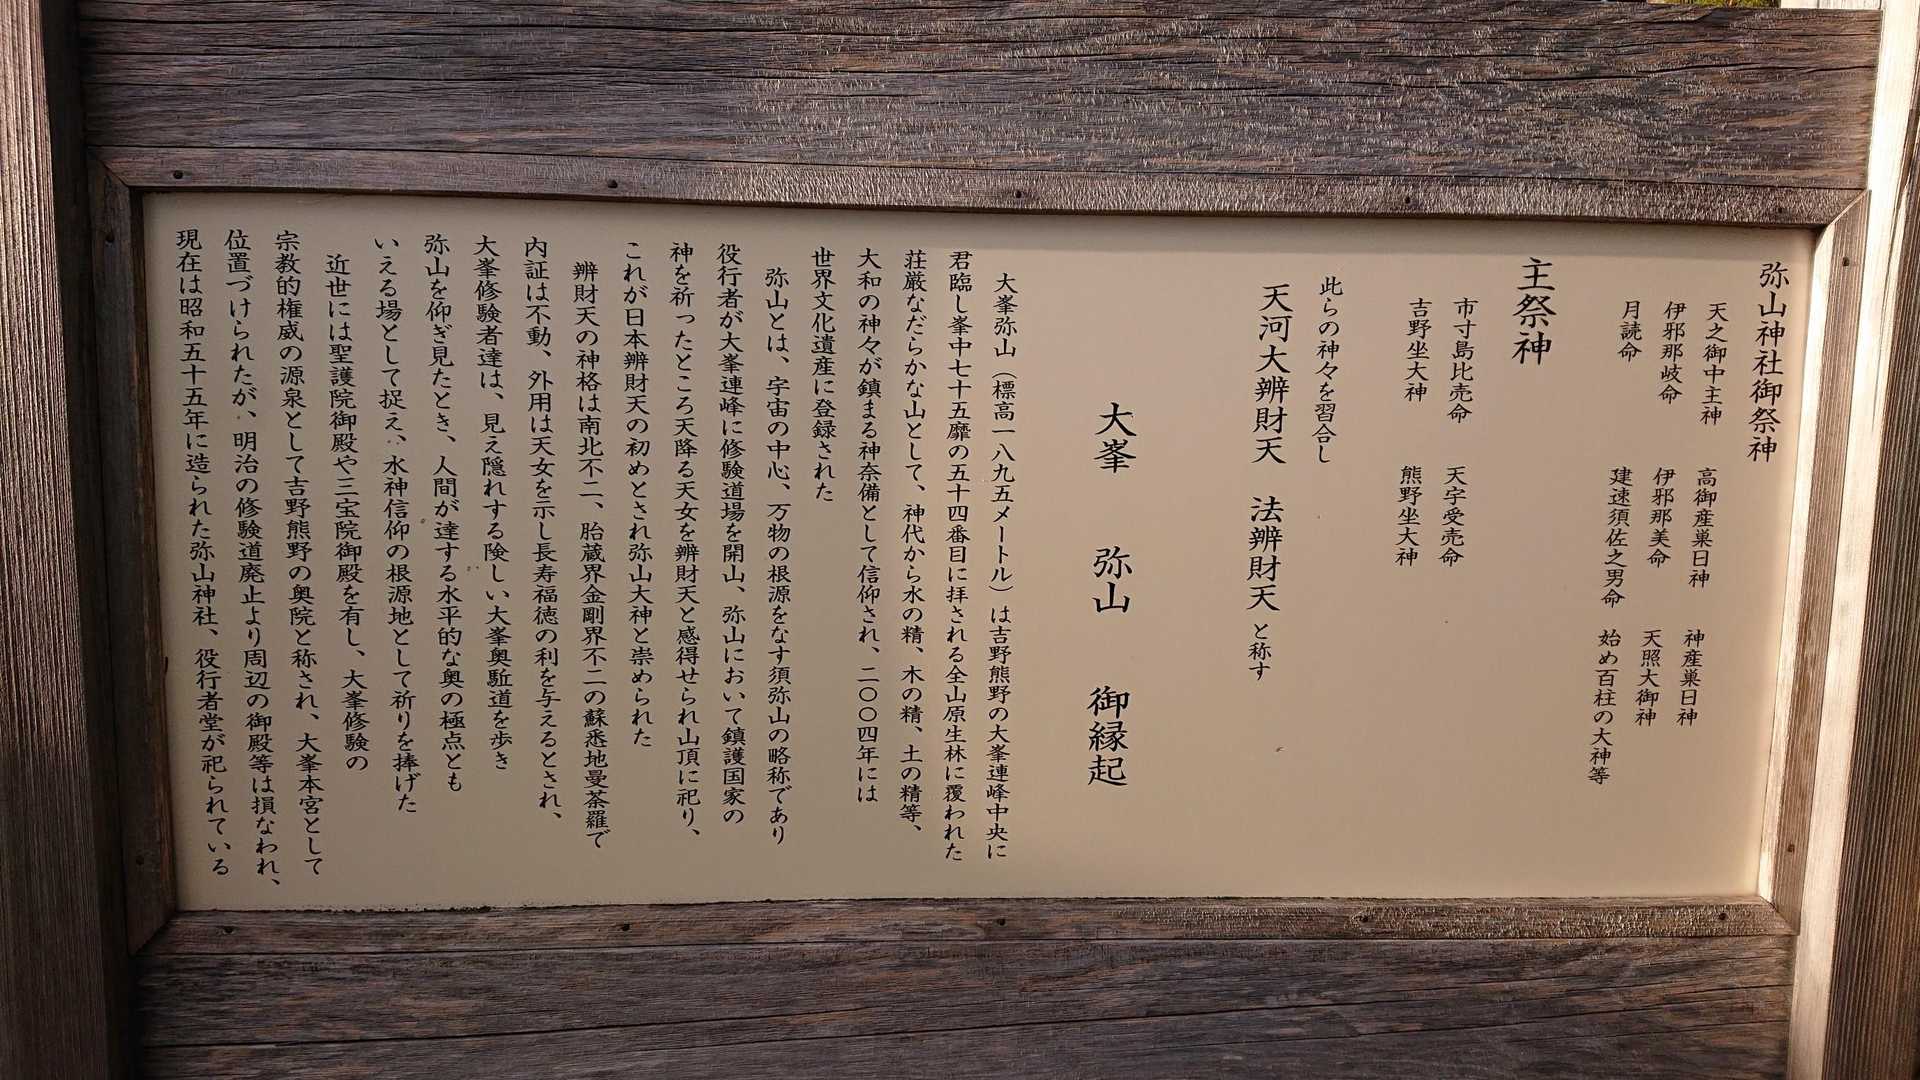 弥山神社御祭神
天之御中主神　高御産巣日神　神産巣日神
伊邪那岐命　伊邪那美命　天照大御神
月読命　建速須佐之男命　始め百柱の大神等
主祭神
市寸島比売命　天宇受売命
吉野坐大神　熊野坐大神
此らの神々を習合し
天河大辨財天　法辨財天と称す
大峯　弥山　御縁起
大峯弥山（標高一八九五メートル）は吉野熊野の大峯連峰中央に
君臨し峯中七十五靡の五十四番目に拝される全山原生林に覆われた
荘厳なだらかな山として、神代から水の精、木の精、土の精等、
大和の神々が鎮まる神奈備として信仰され、二〇〇四年には
世界文化遺産に登録された
弥山とは、宇宙の中心、万物の根源をなす須弥山の略称であり
役行者が大峯連峰に修験道場を開山、弥山において鎮護国家の
神を祈ったところ天降る天女を辨財天と感得せられ山頂に祀り、
これが日本辨財天の初めとされ弥山大神と崇められた
辨財天の神格は南北不二、胎蔵界金剛界不二の蘇悉地曼荼羅で
内証は不動、外用は天女を示し長寿福徳の利を与えるとされ、
大峯修験者達は、見え隠れする険しい大峯奥駈道を歩き
弥山を仰ぎ見たとき、人間が達する水平的な奥の極点とも
いえる場として捉え、水神信仰の根源地として祈りを捧げた
近世には聖護院御殿や三宝院御殿を有し、大峯修験の
宗教的権威の源泉として吉野熊野の奥院と称され、大峯本宮として
位置づけられたが、明治の修験道廃止より周辺の御殿等は損なわれ、
現在は昭和五十五年に造られた弥山神社、役行者堂が祀られている